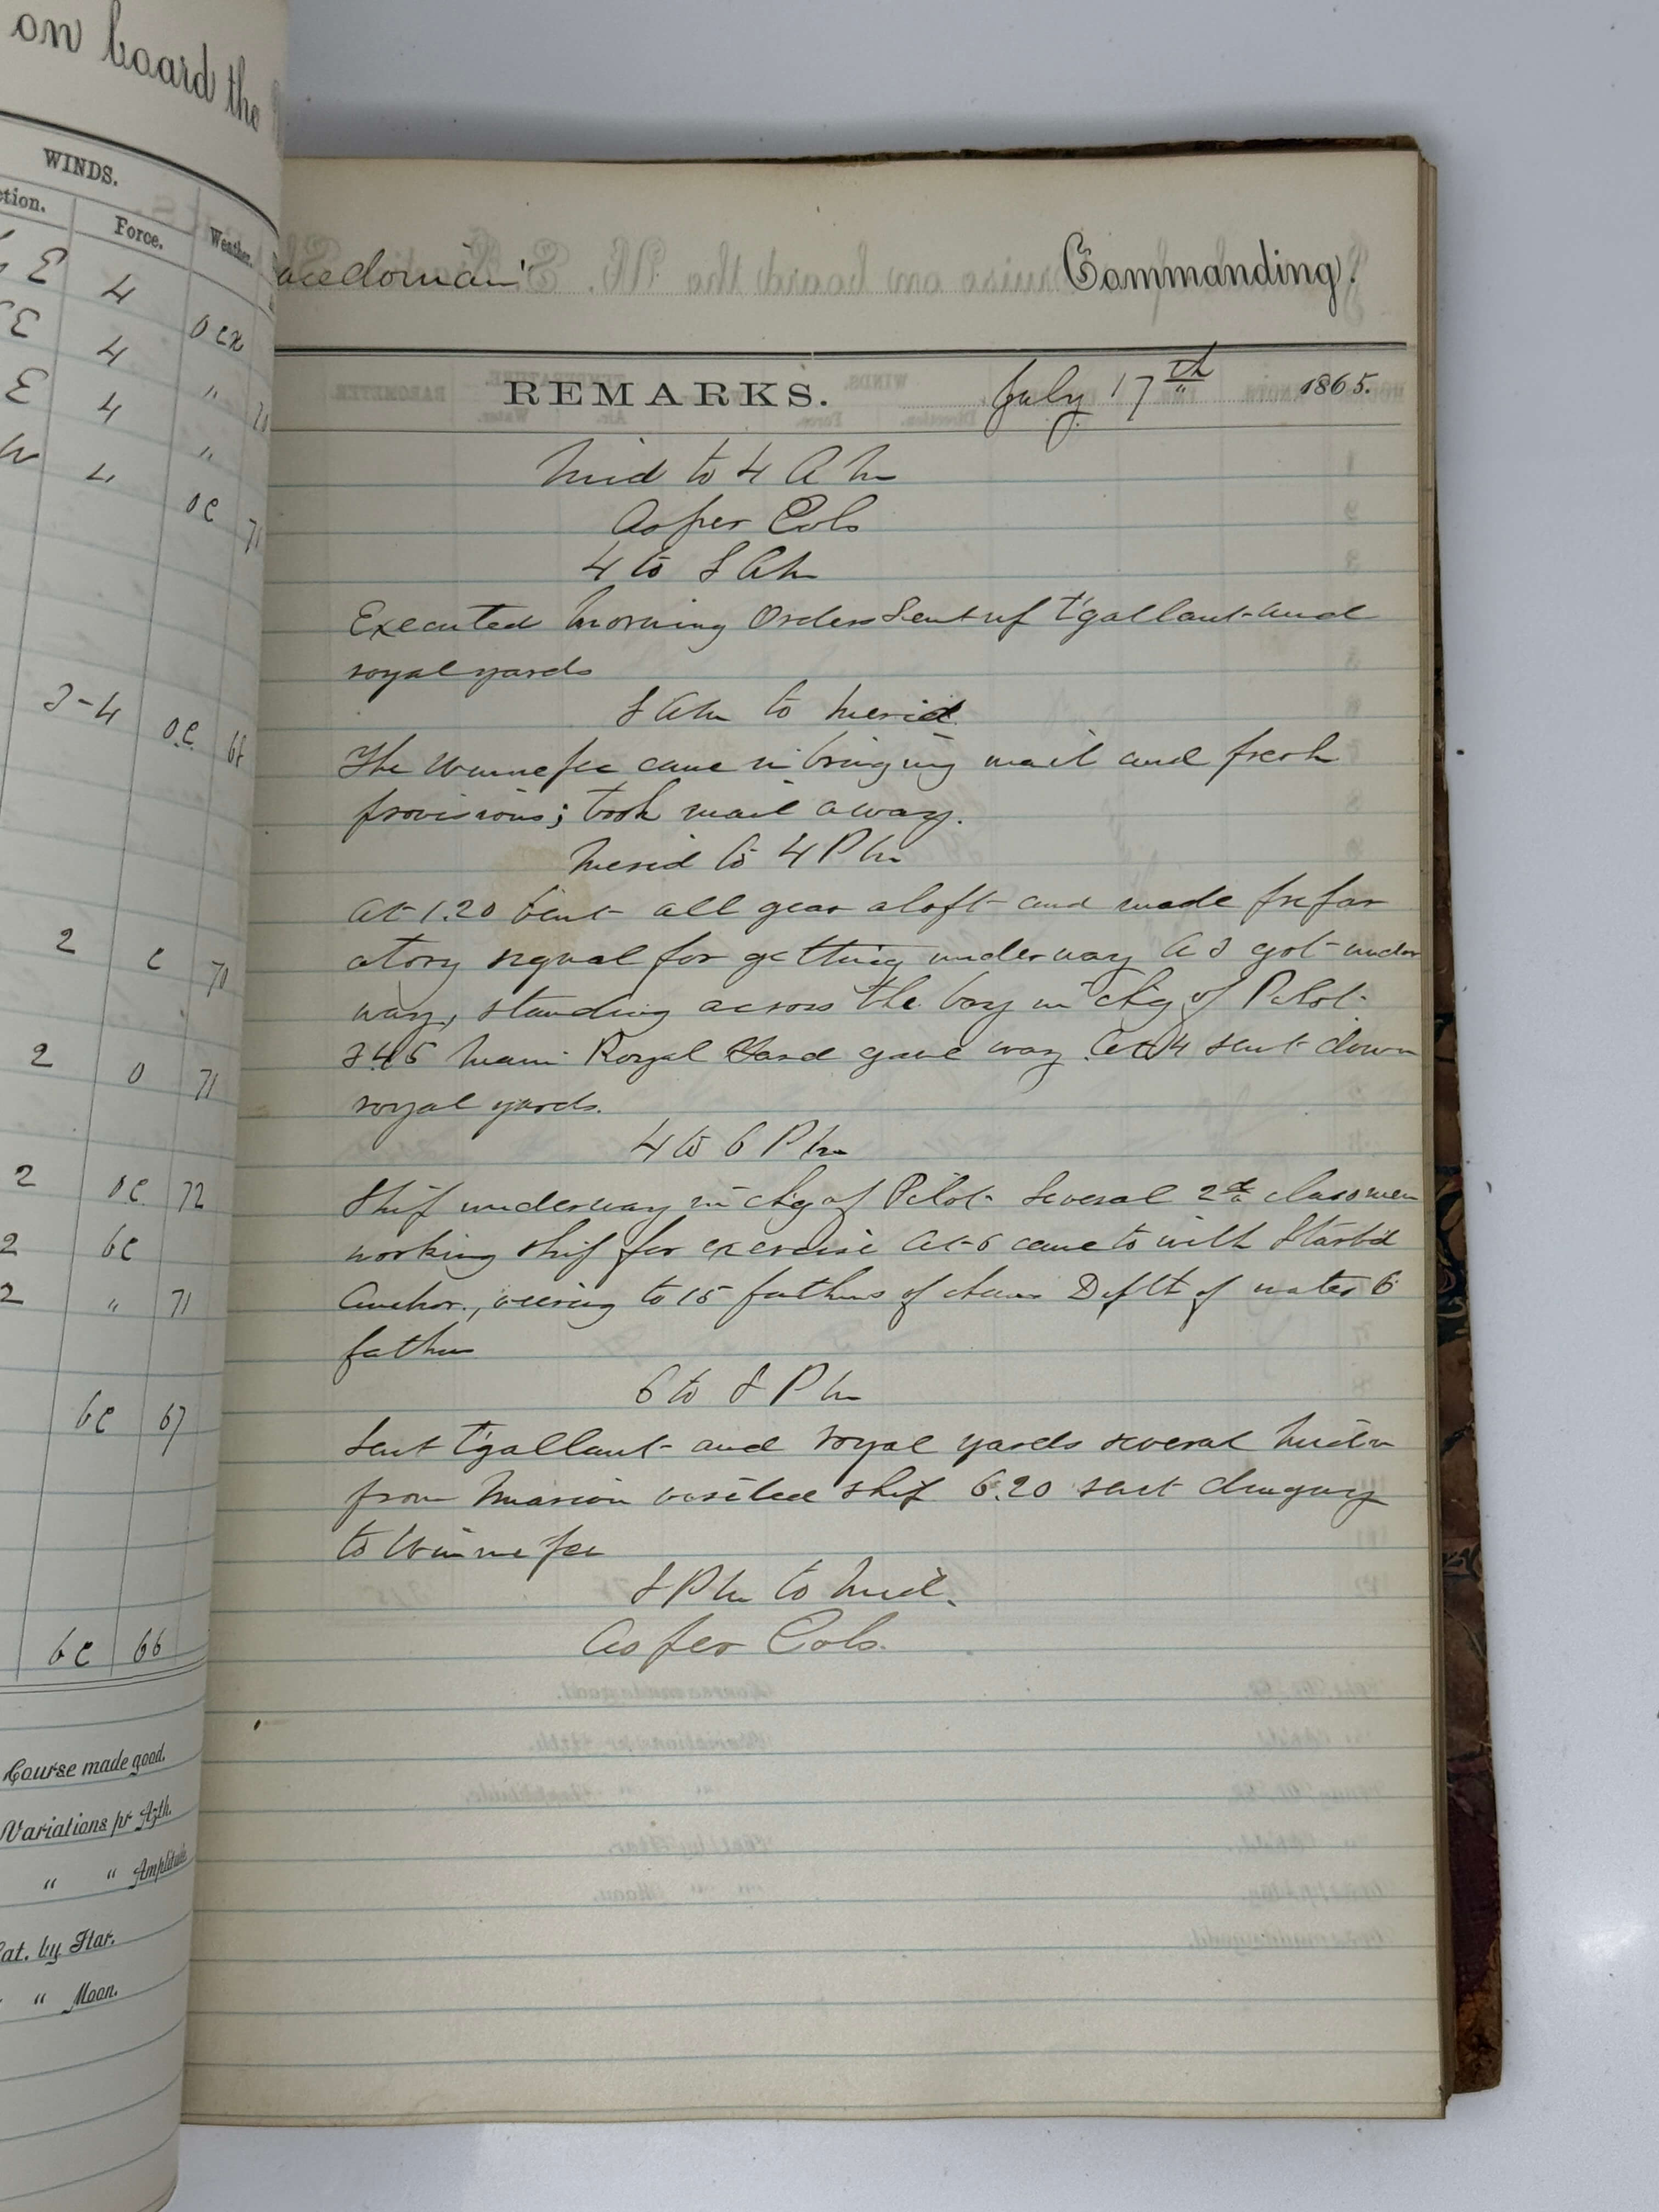 on board the
WINDS.
ction. Force. Weather.
E 4 ocx
E 4 "
E 4 "
W 4 oc 71
3-4 o.c. 68
2 c 70
2 o 71
2 oc 72
2 bc
2 " 71
bc 67
bc 66
Course made good.
Variations pr Azth.
" " Amplitude
Lat. by Star.
" " Moon.
acedonian" Commanding.
REMARKS. July 17th 1865.
Mid to 4 A M
As per Cols
4 to 8 AM
Executed morning Orders Sent up t'gallant and
royal yards
8 AM to Merid
The Winnepec came in bringing mail and fresh
provisions; took mail away.
Merid to 4 PM
At 1.20 bent all gear aloft and made prepar
atory signal for getting underway At 3 got under
way, standing across the bay in chg of Pilot.
3.45 Main Royal Yard gave way. At 4 sent down
royal yards.
4 to 6 PM
Ship underway in chg of Pilot Several 2d classmen
working ship for exercise At 6 came to with Starb'd
Anchor, veering to 15 fathms of chain Depth of water 6
fathm
6 to 8 PM
Sent t'gallant and royal yards several Midn
from Marion visited ship 6.20 sent dinguey
to Winnepec
8 PM to Mid.
As per Cols.